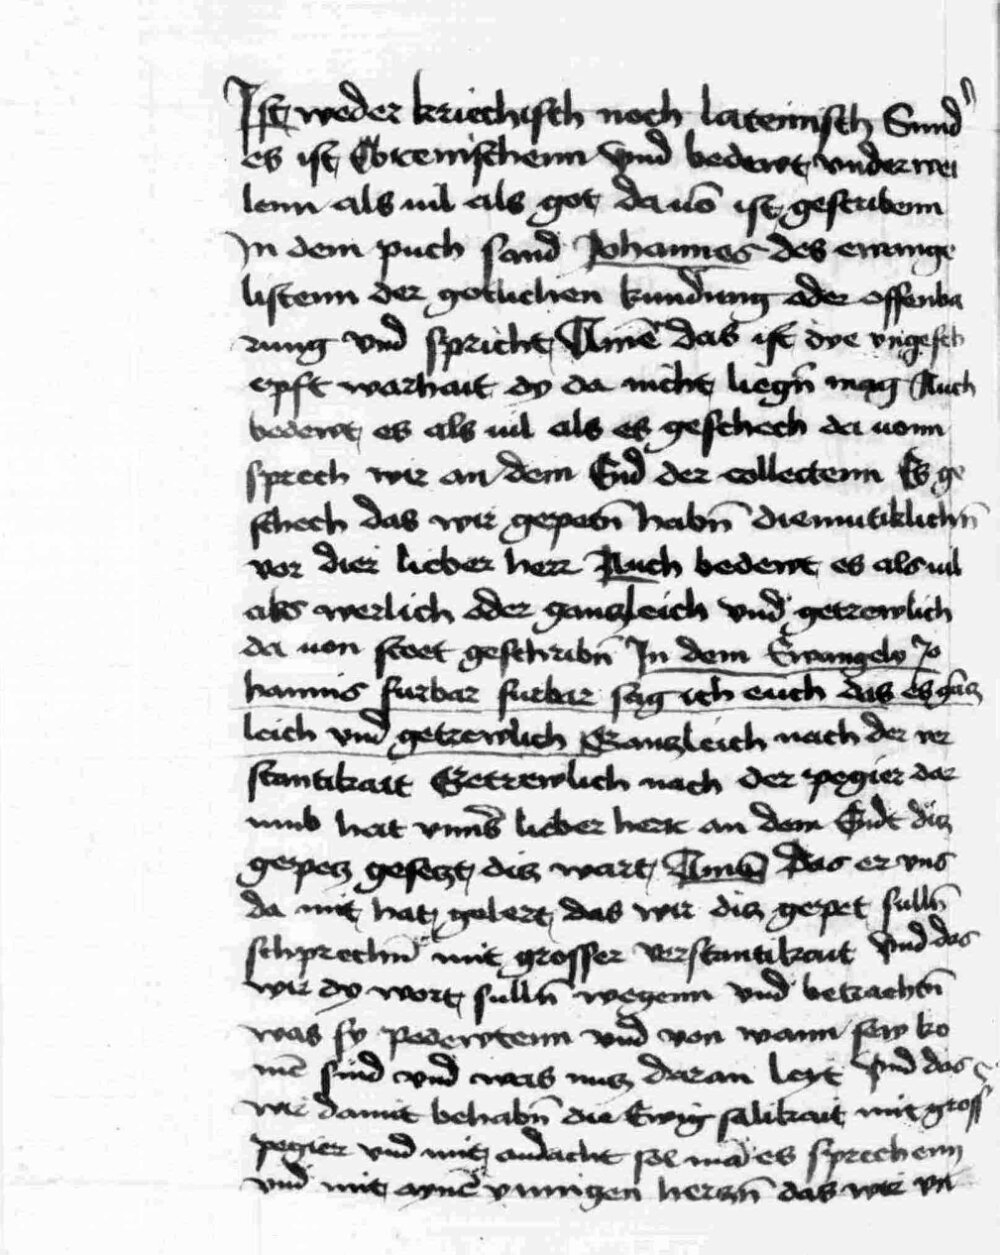 Ist weder kriechisch noch lateinisch Sund
es ist Ebreischenn vnd bedewt vnderwei
lenn als uil als got da uō ist gescribenn
In dem puch sand Johannes des ewange
listenn der gotlichen kundung oder offenba
rung vnd spricht Amē das ist dye vngesch
epft warhait dy da nicht liegn̄ mag Auch
bedewt es als uil als es geschech da uonn
sprech wir an dem End der collectenn Es ge
schech das wir gepetn̄ habn̄ diemutiklichn̄
vor dier lieber herr Auch bedewt es als uil
als werlich oder ganzleich vnd getrewlich
da uon steet geschribn̄ In dem Ewangely Jo
hannis furbar furbar sag ich euch das es gāz
leich vnd getrewlich Ganzleich nach der ver
stantikait Getrewlich nach der pegier dar
umb hat vnns lieber herr an dem Endt diz
gepetz gesetzt diz wart Amen Das er vns
da mit hat gelert das wir diz gepet sulln̄
schprechn̄ mit grosser verstantikait Vnd das
wir dy wort sulln̄ wegenn vnd betrachtn̄
was sy pedewtenn vnd von wann sew ko
mē sind vnd was nuz daran leyt Vnd das
wir damit behabn̄ die Ewig salikait mit gross
pegier vnd mit andacht sol mā es sprechenn
vnd mit aynē ynnigen herczn̄ das wir vn